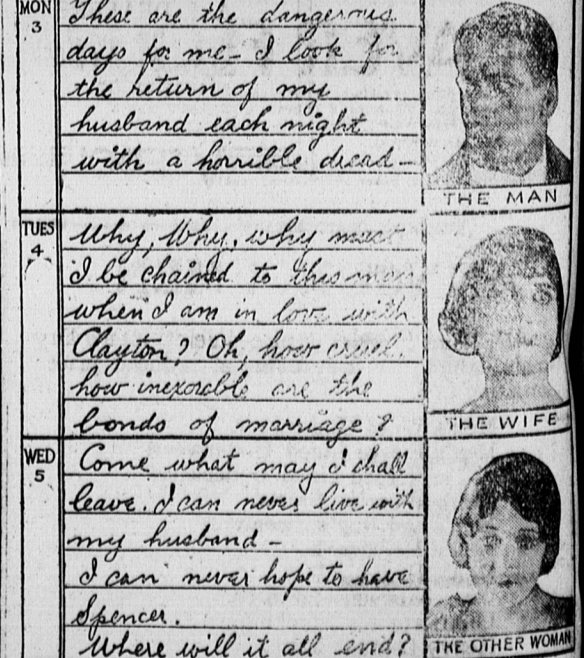 MON
3
These are the dangerous
days for me - I look for
the return of my
husband each night
with a horrible dread -
THE MAN
TUES
4
Why, Why, why must
I be chained to this man
when I am in love with
Clayton? Oh, how cruel,
how inexorable are the
bonds of marriage?
THE WIFE
WED
5
Come what may I shall
leave. I can never live with
my husband -
I can never hope to have
Spencer.
Where will it all end?
THE OTHER WOMAN